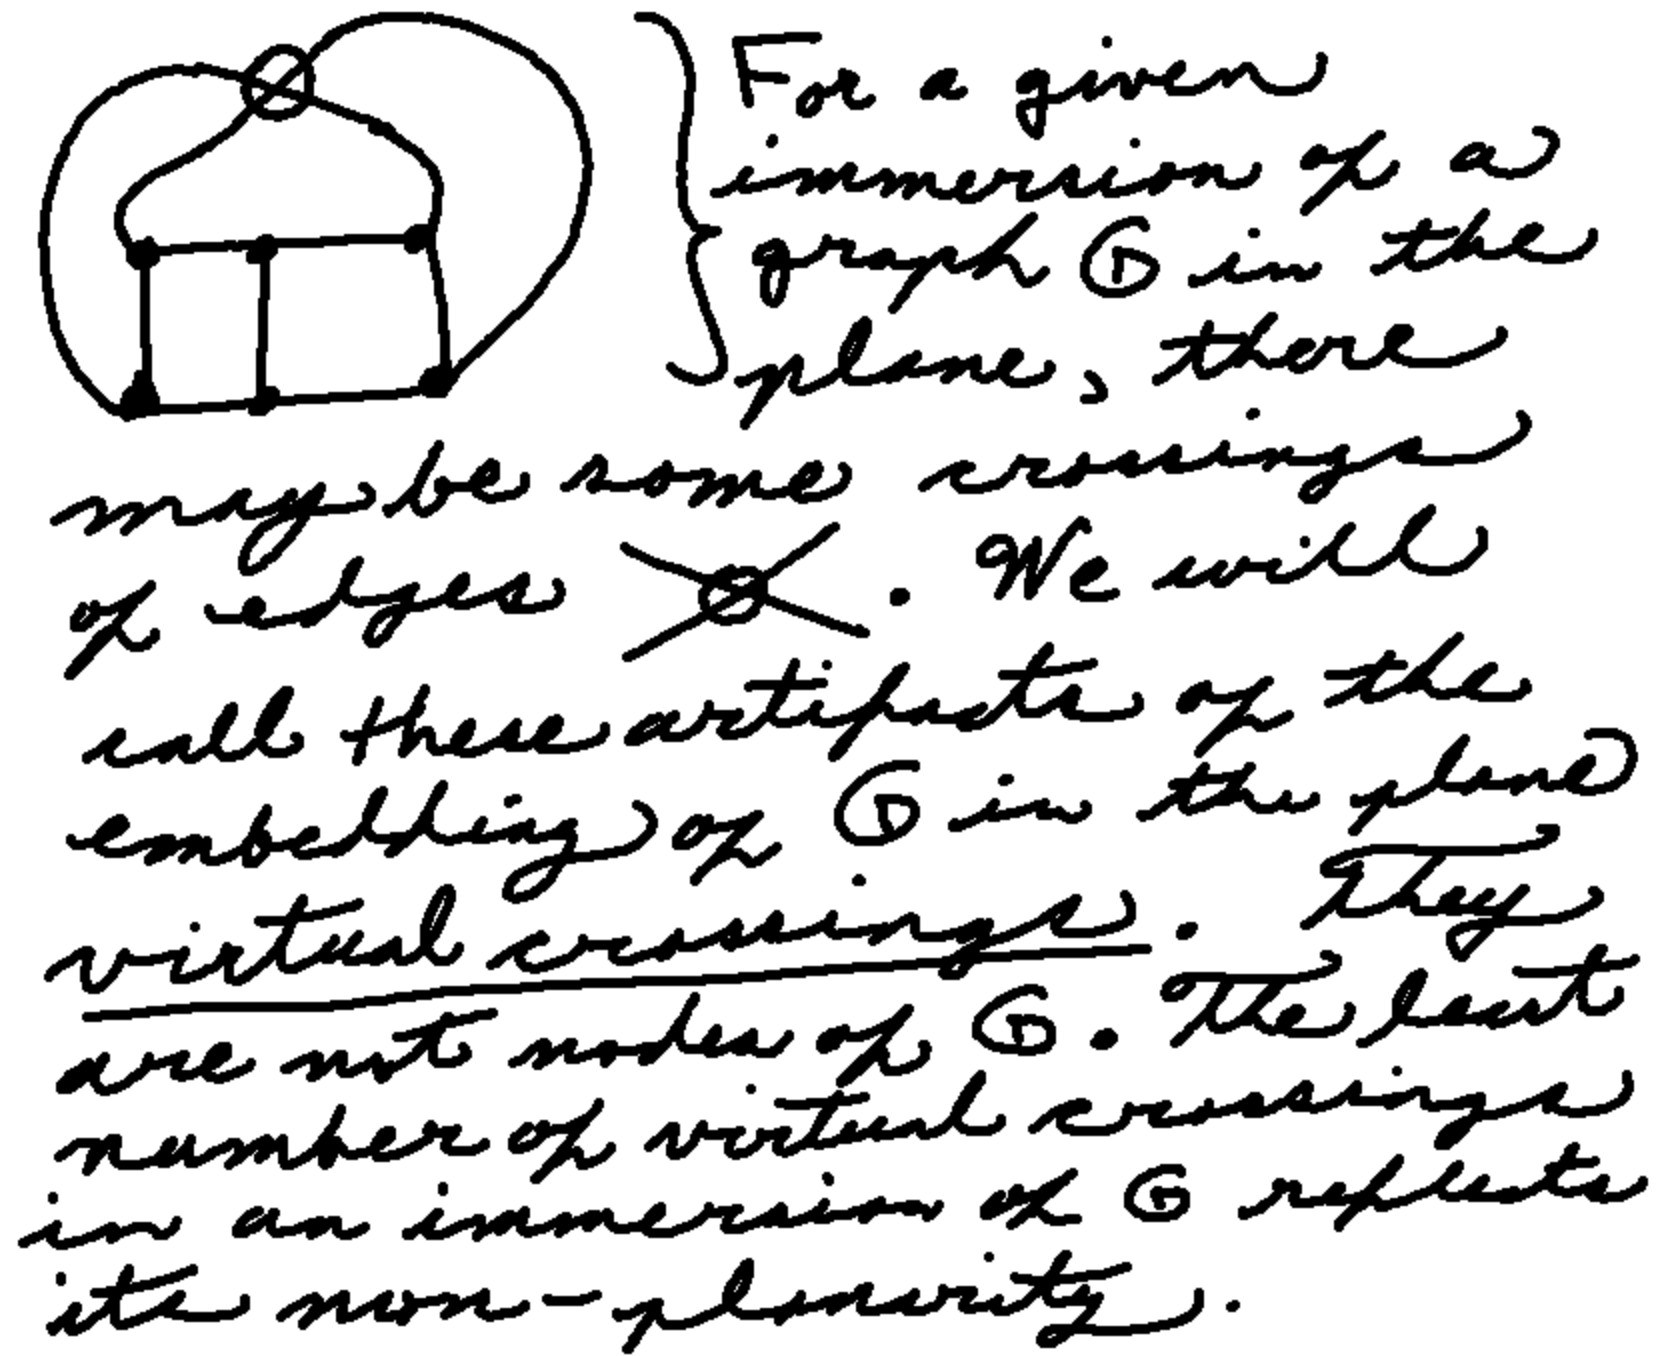 For a given
immersion of a
graph G in the
plane, there
may be some crossings
of edges . We will
call these artifacts of the
embedding of G in the plane
virtual crossings. They
are not nodes of G. The least
number of virtual crossings
in an immersion of G reflects
its non-planarity.